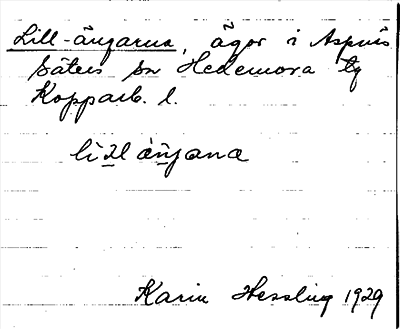 Lill-ängarna, ägor i Aspnäs
Säters sn Hedemora tg
Kopparb. l.
lìlläŋ̀ana
Karin Hessling 1929